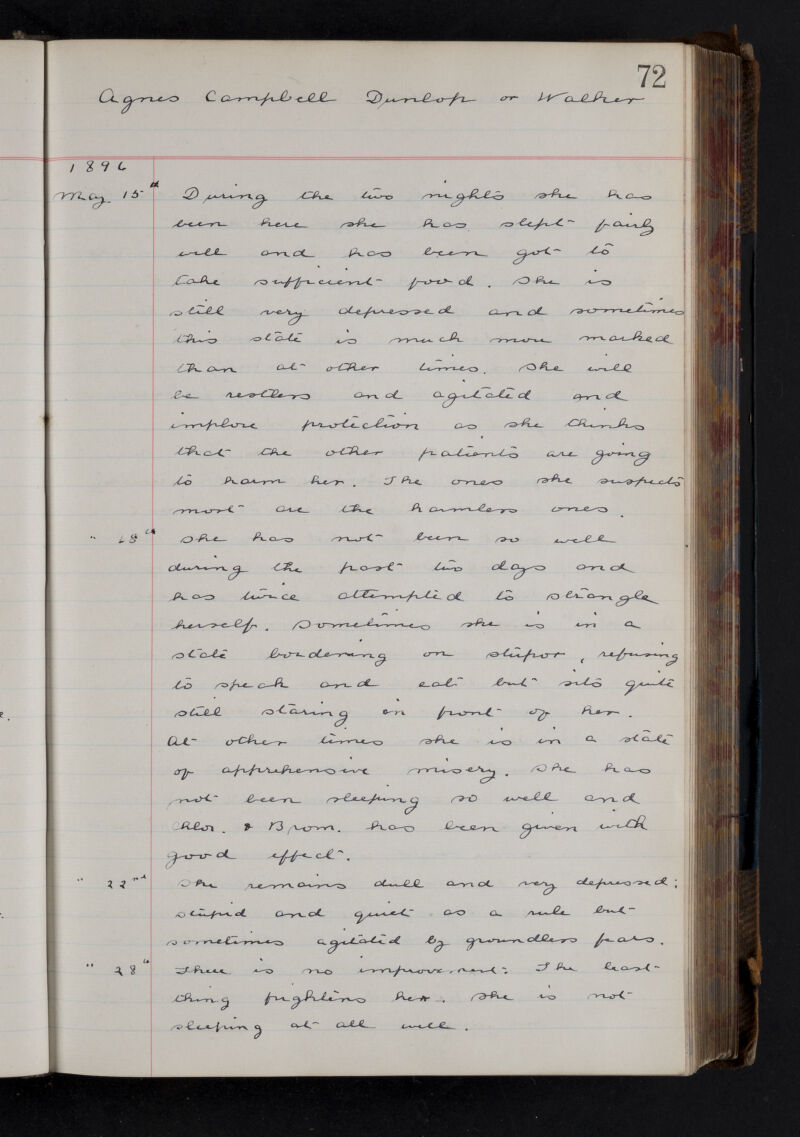 72
Agnes Campbell Dunlop or Walker
1896
May 15th During the two nights she has
been here she has slept fairly
well and has been got to
take sufficient food. She is
still very depressed and sometimes
this state is much more marked
than at other times. She will
be restless and agitated and
implore protection as she thinks
that the other patients are going
to harm her. The ones she suspects
most are the harmless ones.
" 18th She has not been so well
during the past two days and
has twice attempted to strangle
herself. Sometimes she is in a
state bordering on stupor, refusing
to speak and eat but sits quite
still staring in front of her.
At other times she is in a state
of apprehensive misery. She has
not been sleeping so well and
Chlor. & Brom. has been given with
good effect.
" 22nd She remains dull and very depressed:
stupid and quiet as a rule but
sometimes agitated by groundless fears.
" 28th There is no improvement: The least
thing frightens her. She is not
sleeping at all well.